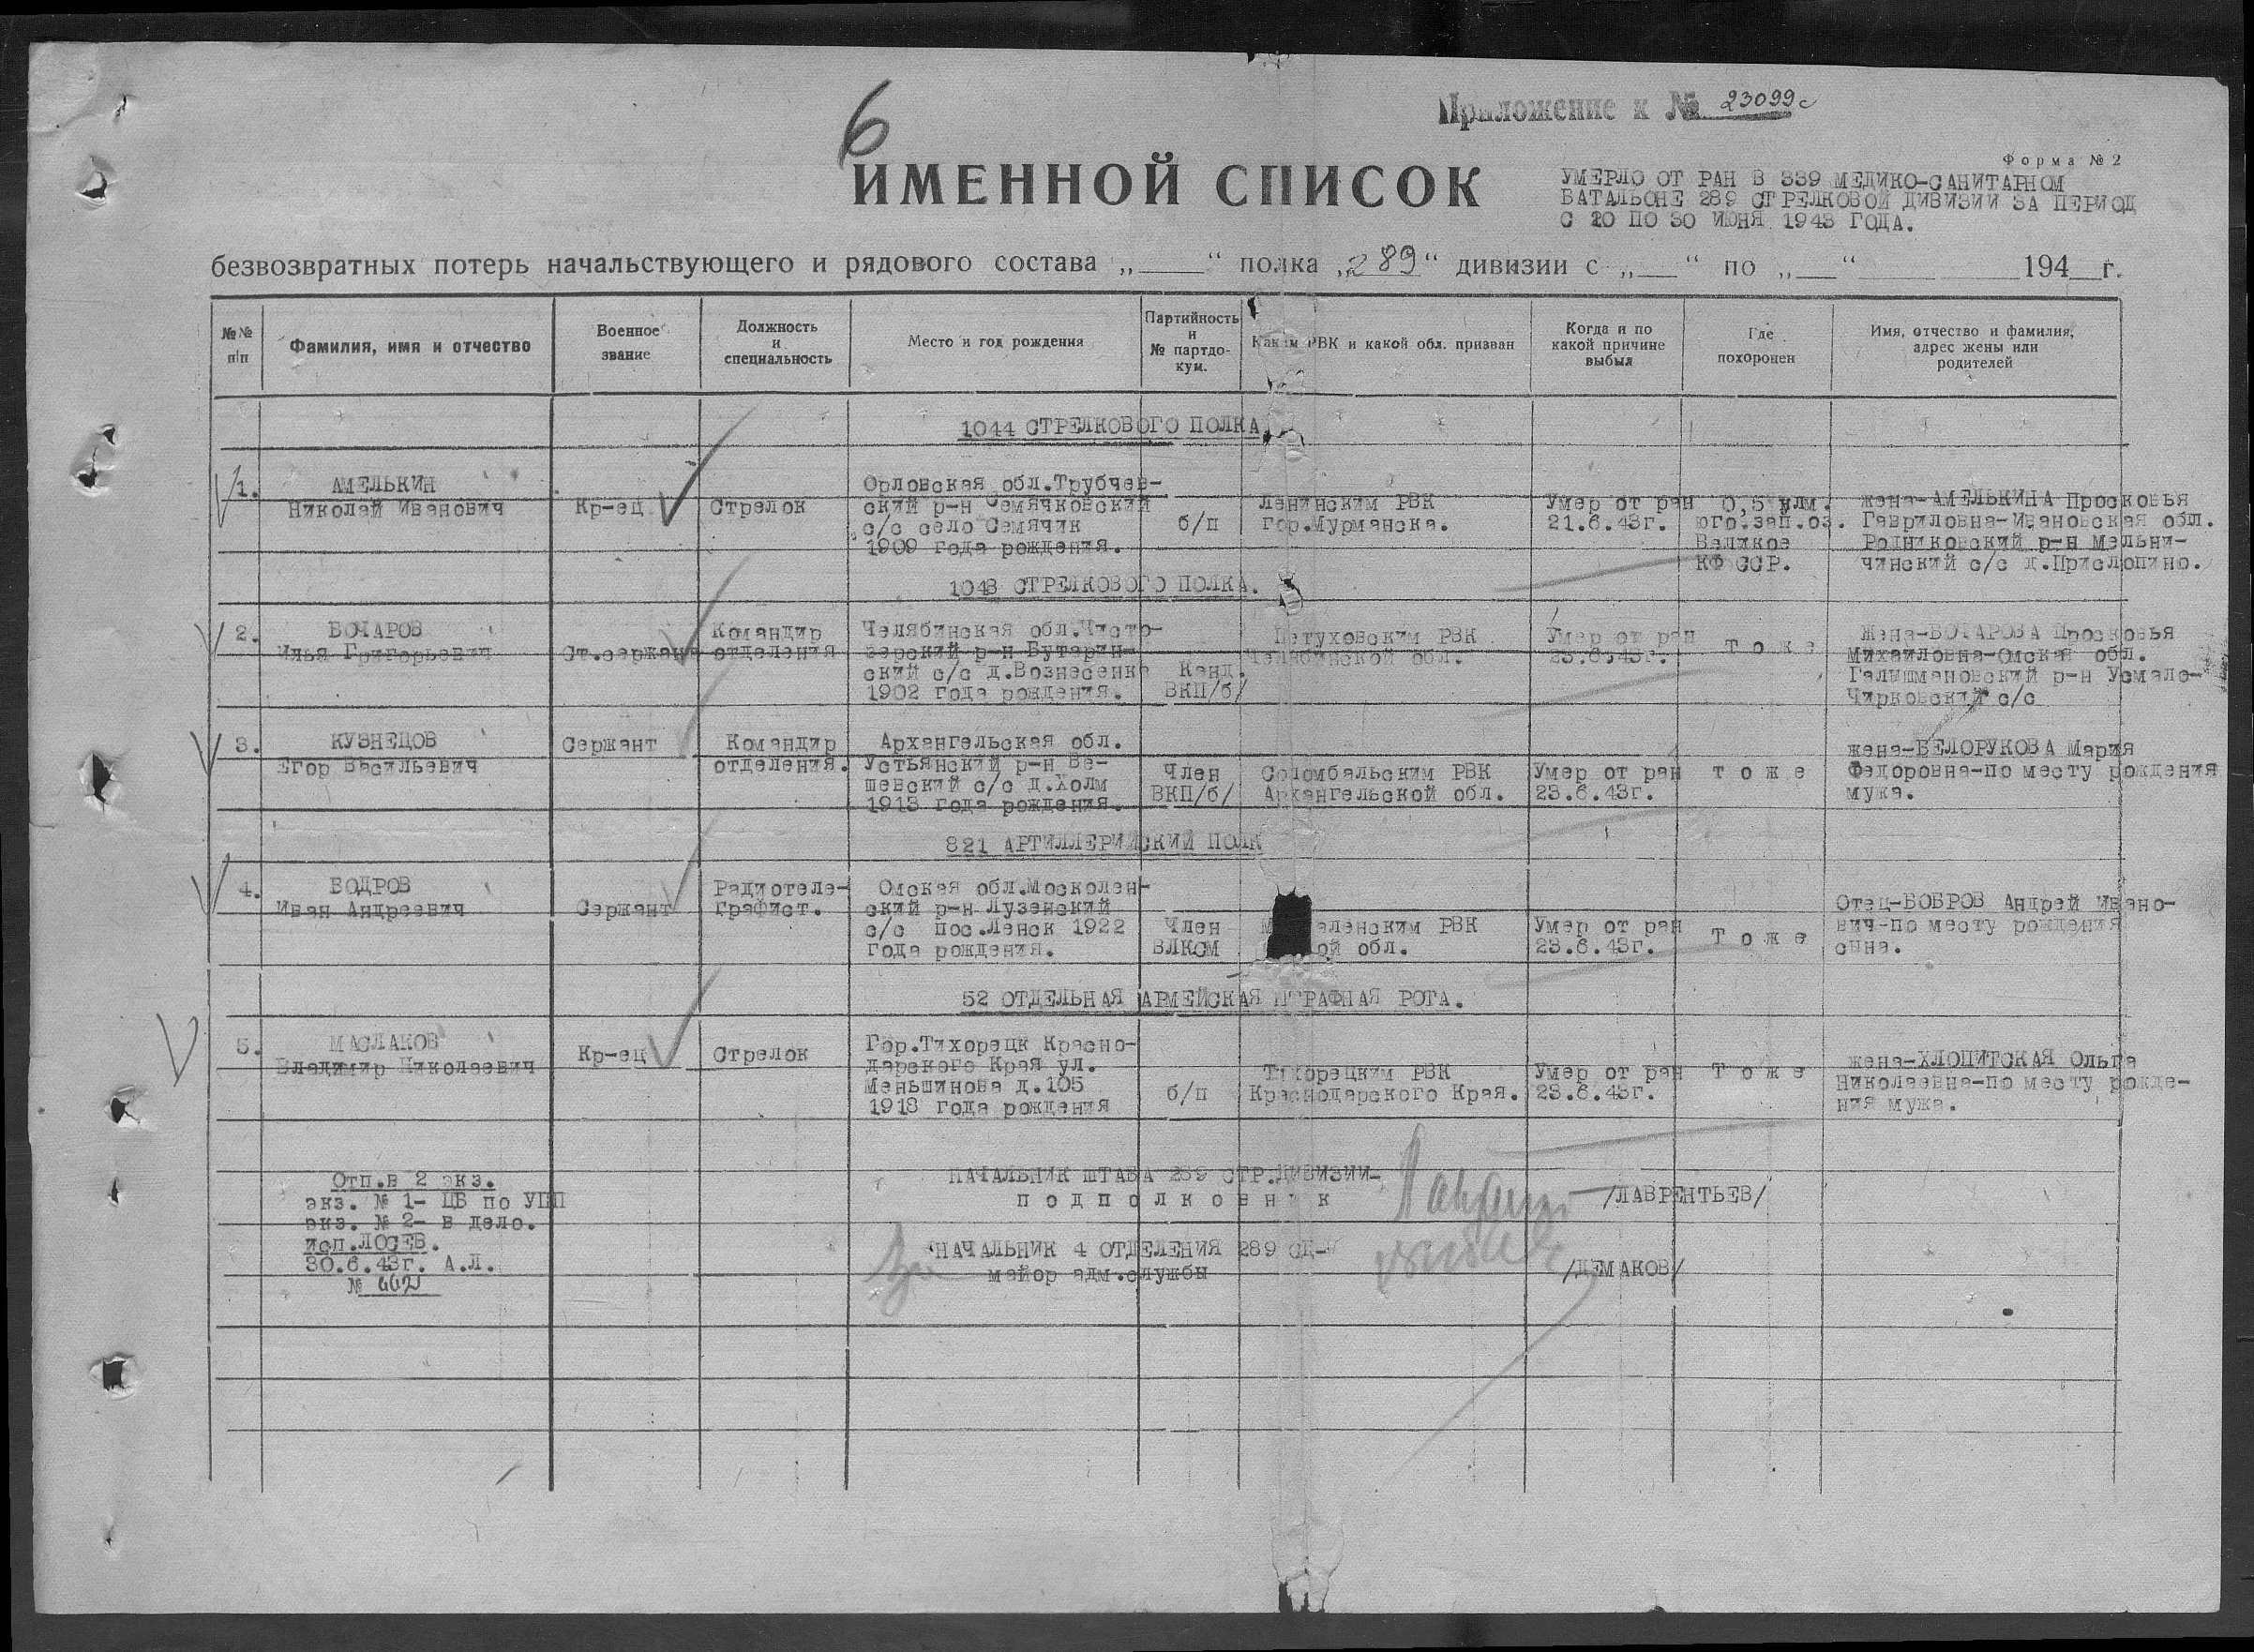 6
Приложение к № 23099с
Форма № 2
ИМЕННОЙ СПИСОК
УМЕРЛО ОТ РАН В 339 МЕДИКО-САНИТАРНОМ
БАТАЛЬОНЕ 289 СТРЕЛКОВОЙ ДИВИЗИИ ЗА ПЕРИОД
С 20 ПО 30 ИЮНЯ 1943 ГОДА.
безвозвратных потерь начальствующего и рядового состава „____“ полка „289“ дивизии с „__“ по „__“ ____ 194__г.
№№ п/п
Фамилия, имя и отчество
Военное звание
Должность и специальность
Место и год рождения
Партийность и № партдокум.
Каким РВК и какой обл. призван
Когда и по какой причине выбыл
Где похоронен
Имя, отчество и фамилия, адрес жены или родителей
1044 СТРЕЛКОВОГО ПОЛКА
1.
АМЕЛЬКИН
Николай Иванович
Кр-ец
Стрелок
Орловская обл.Трубчев-
ский р-н Семячковский
с/с село Семячик
1909 года рождения.
б/п
Ленинским РВК
гор.Мурманска.
Умер от ран
21.6.43г.
0,5 клм.
юго.зап.оз.
Великое
КФ ССР.
жена-АМЕЛЬКИНА Просковья
Гавриловна-Ивановская обл.
Родниковский р-н Мельни-
чинский с/с д.Прислопино.
1043 СТРЕЛКОВОГО ПОЛКА.
2.
БОЧАРОВ
Илья Григорьевич
Ст.сержант
Командир
отделения
Челябинская обл.Чисто-
зерский р-н Бутырин-
ский с/с д.Вознесенка
1902 года рождения.
Канд.
ВКП/б/
Петуховским РВК
Челябинской обл.
Умер от ран
23.6.43г.
Т о ж е
Жена-БОЧАРОВА Просковья
Михайловна-Омская обл.
Галышмановский р-н Усмало-
Чирковский с/с
3.
КУЗНЕЦОВ
Егор Васильевич
Сержант
Командир
отделения.
Архангельская обл.
Устьянский р-н Ве-
шевский с/с д.Холм
1913 года рождения.
Член
ВКП/б/
Соломбальским РВК
Архангельской обл.
Умер от ран
23.6.43г.
т о ж е
жена-БЕЛОРУКОВА Мария
Федоровна-по месту рождения
мужа.
821 АРТИЛЛЕРИЙСКИЙ ПОЛК
4.
БОДРОВ
Иван Андреевич
Сержант
Радиотеле-
графист.
Омская обл.Москолен-
ский р-н Лузенский
с/с пос.Ленск 1922
года рождения.
Член
ВЛКСМ
М аленским РВК
ой обл.
Умер от ран
23.6.43г.
Т о ж е
Отец-БОБРОВ Андрей Ивано-
вич-по месту рождения
сына.
52 ОТДЕЛЬНАЯ АРМЕЙСКАЯ ШТРАФНАЯ РОТА.
5.
МАСЛАКОВ
Владимир Николаевич
Кр-ец
Стрелок
Гор.Тихорецк Красно-
дарского Края ул.
Меньшинова д.105
1918 года рождения
б/п
Тихорецким РВК
Краснодарского Края.
Умер от ран
23.6.43г.
Т о ж е
жена-ХЛОПИТСКАЯ Ольга
Николаевна-по месту рожде-
ния мужа.
НАЧАЛЬНИК ШТАБА 289 СТР.ДИВИЗИИ-
п о д п о л к о в н и к
/ЛАВРЕНТЬЕВ/
НАЧАЛЬНИК 4 ОТДЕЛЕНИЯ 289 СД-
майор адм.службы
/ДЕМАКОВ/
Отп.в 2 экз.
экз. № 1- ЦБ по УПП
экз. № 2- в дело.
исп.ЛОСЕВ.
30.6.43г. А.Л.
№